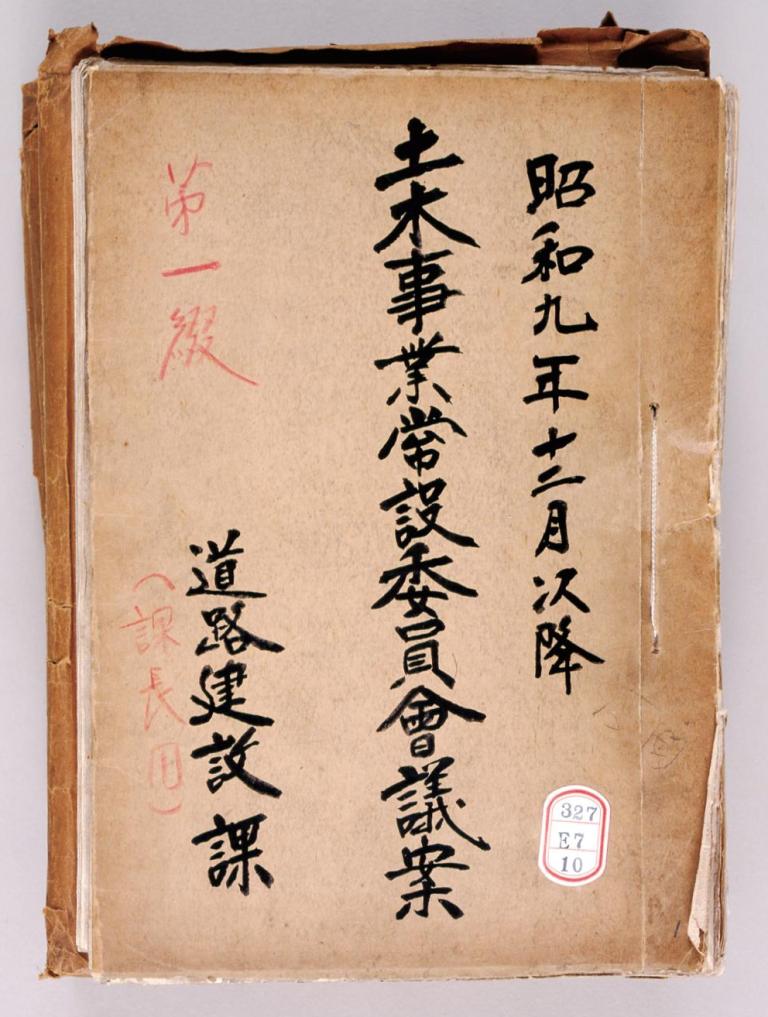 昭和九年十二月次降
土木事業常設委員會議案
第一綴
道路建設課
（課長用）
327
E7
10